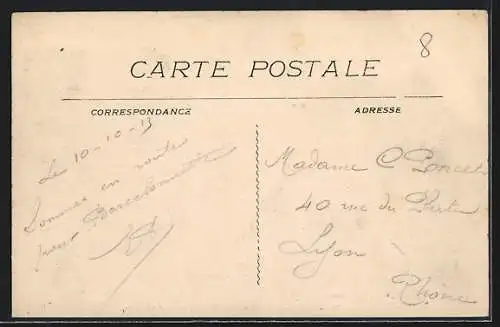 8
CARTE POSTALE
CORRESPONDANCE
ADRESSE
Le 10-10-13
Sommes en route
pour Barcelonnette
Madame C Poncet
40 rue du
Lyon
Rhône